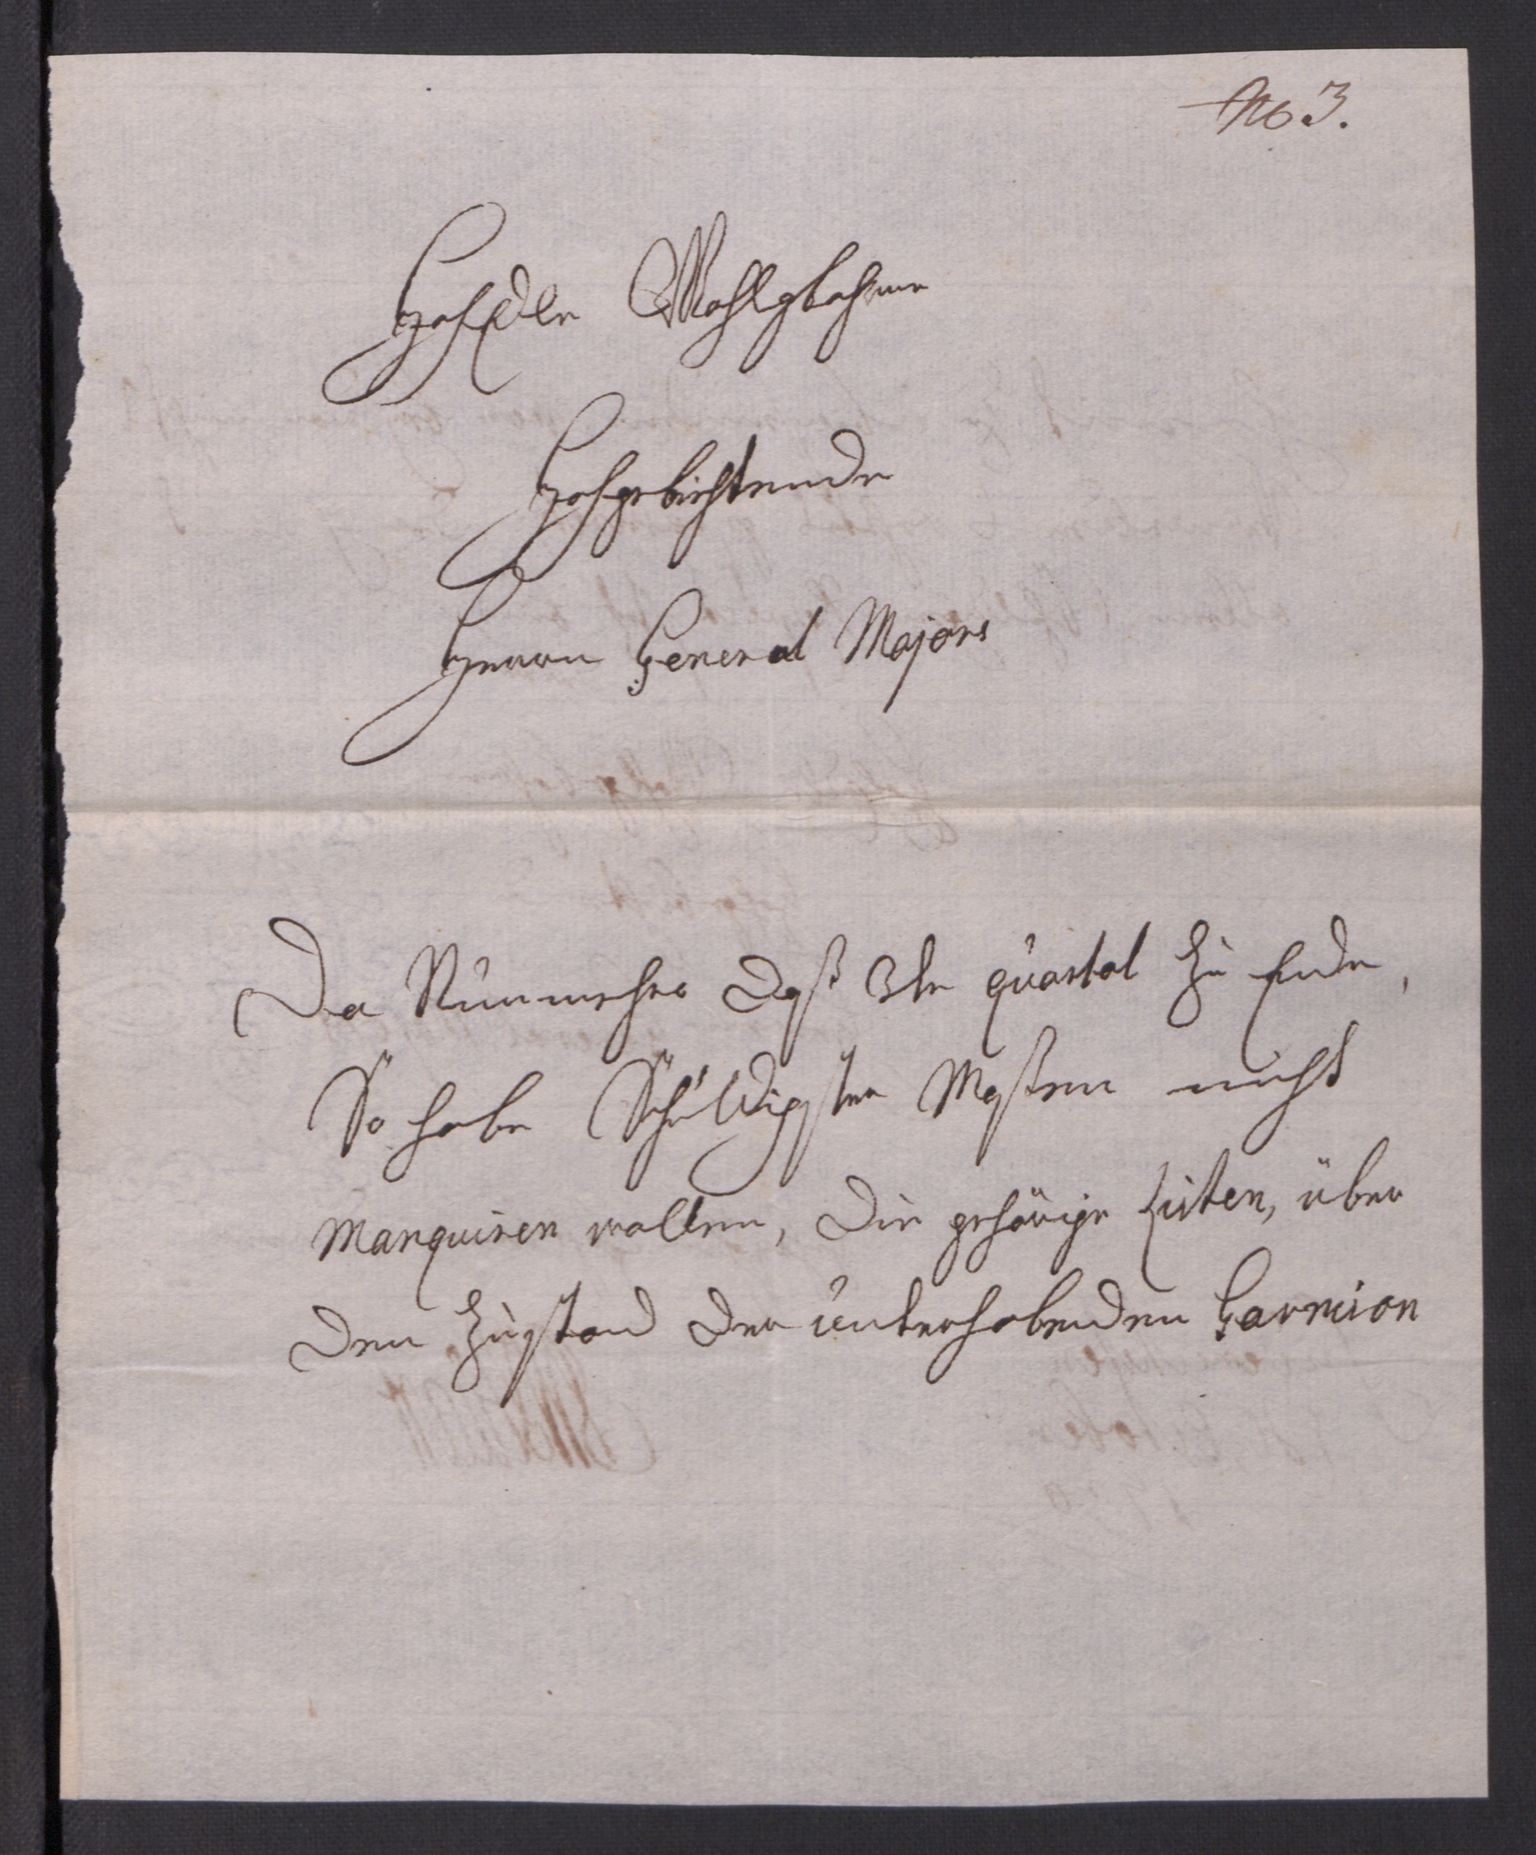 No 3.
HochEdle Wohlgebohrne
Hochgebiethende
Herrn General Majors
Da Nunmehro daß 3te quartal zu Ende,
So habe Schuldigster Maßen nicht
Manquiren wollen, die gehörige Listen, über
den Zustand der unterhabenden Garnison